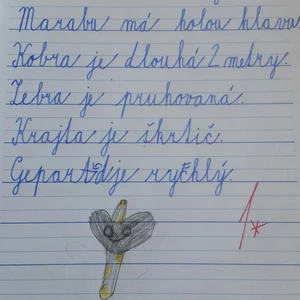 Marabu má holou hlavu.
Kobra je dlouhá 2 metry.
Zebra je pruhovaná.
Krajta je škrtič.
Gepard je rychlý.
1*